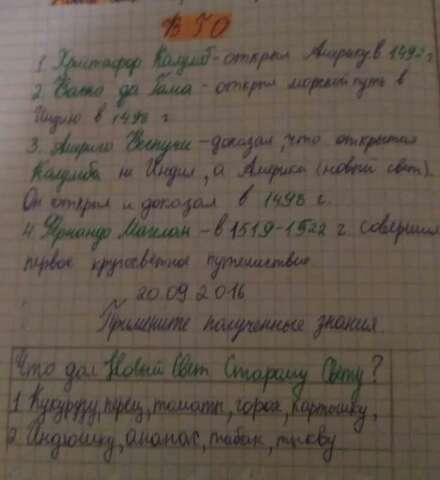 ВГО
1 Христафор Калумб - открыл Америку в 1492 г
2 Васко да Гама - открыл морской путь в
Индию в 1498 г
3. Америго Веспучи - доказал, что открытая
Калумба не Индия, а Америка (новый свет).
Он открыл и доказал в 1498 г.
4. Фернандо Магелан - в 1519-1522 г. совершил
первое кругосветное путешествие
20.09.2016
Примените полученные знания.
Что дал Новый Свет Старому Свету?
1 Кукурузу, перец, томаты, горох, картошку,
2 Индюшку, ананас, табак, тыкву